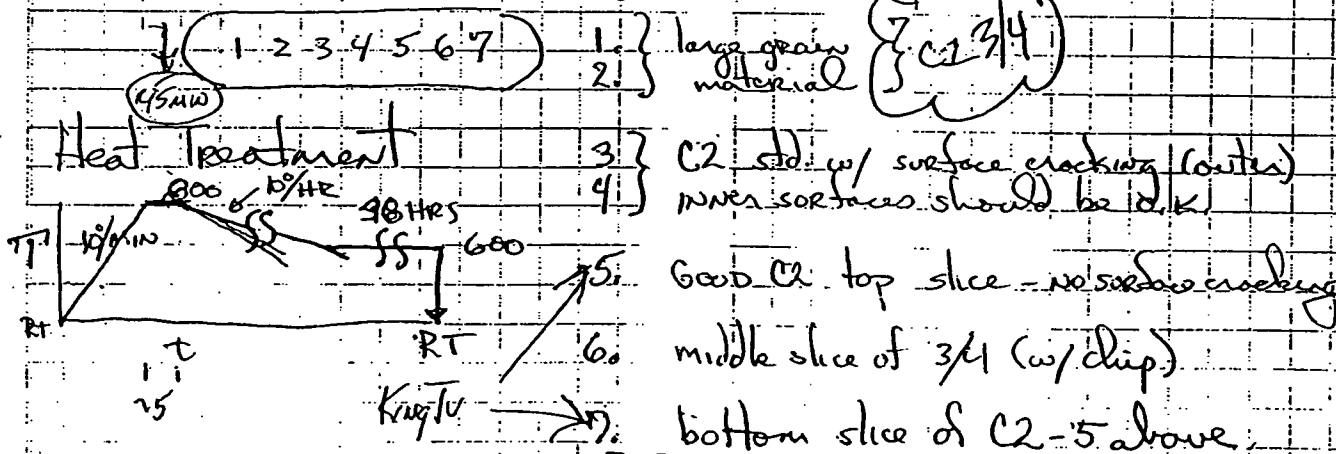 1 2 3 4 5 6 7
1. } large grain
2. } material } C2 3/4
Heat Treatment
3 } C2 std. w/ surface cracking (outer)
4 } inner surfaces should be O.K.
800
10°/HR
10°/MIN
48 HRS
600
T
RT
t
RT
~5
5. GOOD C2 top slice - no surface cracking
6. middle slice of 3/4 (w/ chip)
7. bottom slice of C2-5 above.